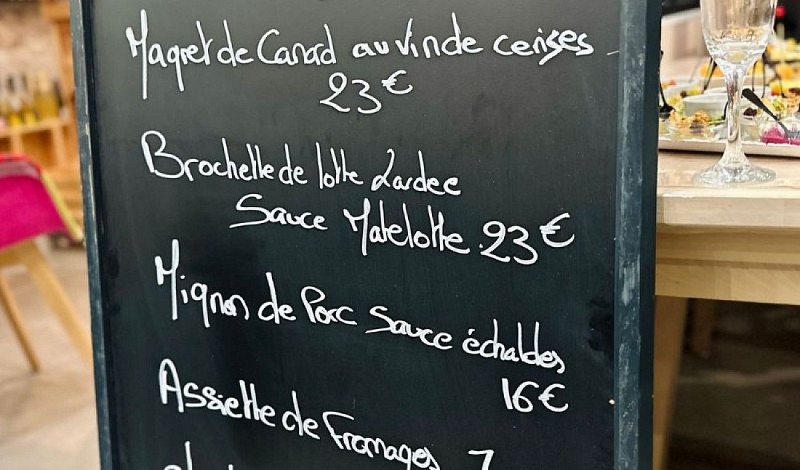 Magret de Canard au vin de cerises
23€
Brochette de lotte Lardee
Sauce Matelotte 23€
Mignon de Porc Sauce échaldes
16€
Assiette de Fromages 7